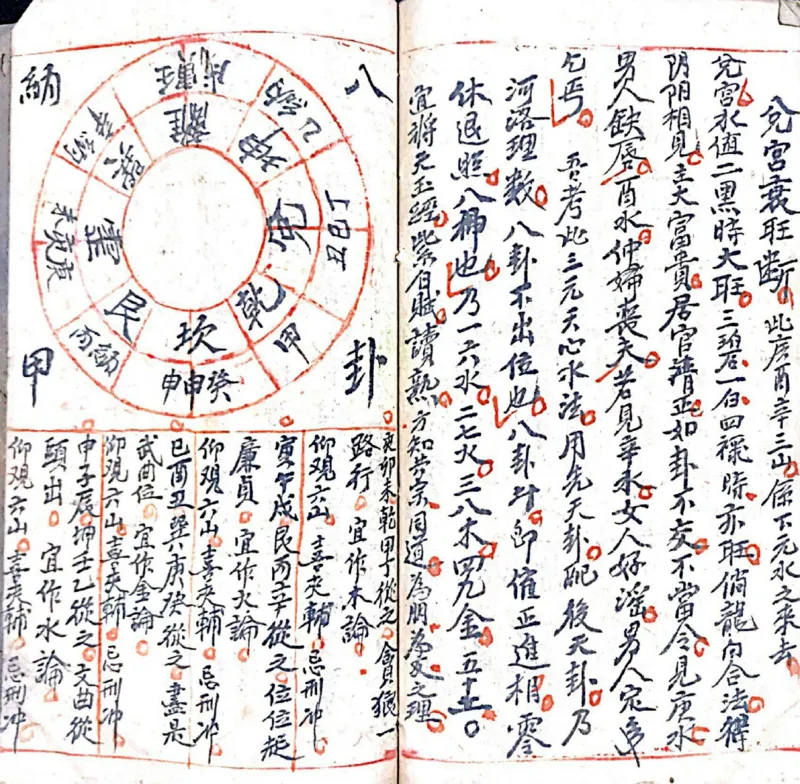 兌宮衰旺斷 此庚酉辛三山 係下元水之來去
兌宮水值二黑時大旺三碧一白四祿時亦旺倘龍向合法得
阴阳相見主大富貴居官清正如卦不交不當令見庚水
男人缺唇酉水仲婦喪夫若見辛水女人好淫男人定早
乞丐 吾考此三元天心水法用先天卦配後天卦乃
河路理数八卦不出位也八卦 即催正進相零
休退照八神也乃一六水二七火三八木四九金五十土
宜將天玉經紫白賊讀熟方知共宗同道為朋為友之理
八卦
納甲
離
坤
兌
乾
坎
艮
震
巽
乙納
丁巳丑
甲
癸申
丙納
庚亥未
辛納
亥卯未乾甲丁從之貪狼一
路行 宜作木論
仰观六山喜夾輔忌刑冲
寅午戌艮丙辛從之位位起
廉貞 宜作火論
仰观六山喜夾輔忌刑冲
巳酉丑巽庚癸從之盡是
武曲位 宜作金論
仰观六山喜夾輔忌刑冲
申子辰坤壬乙從之文曲從
頭出 宜作水論
仰观六山喜夾輔忌刑冲